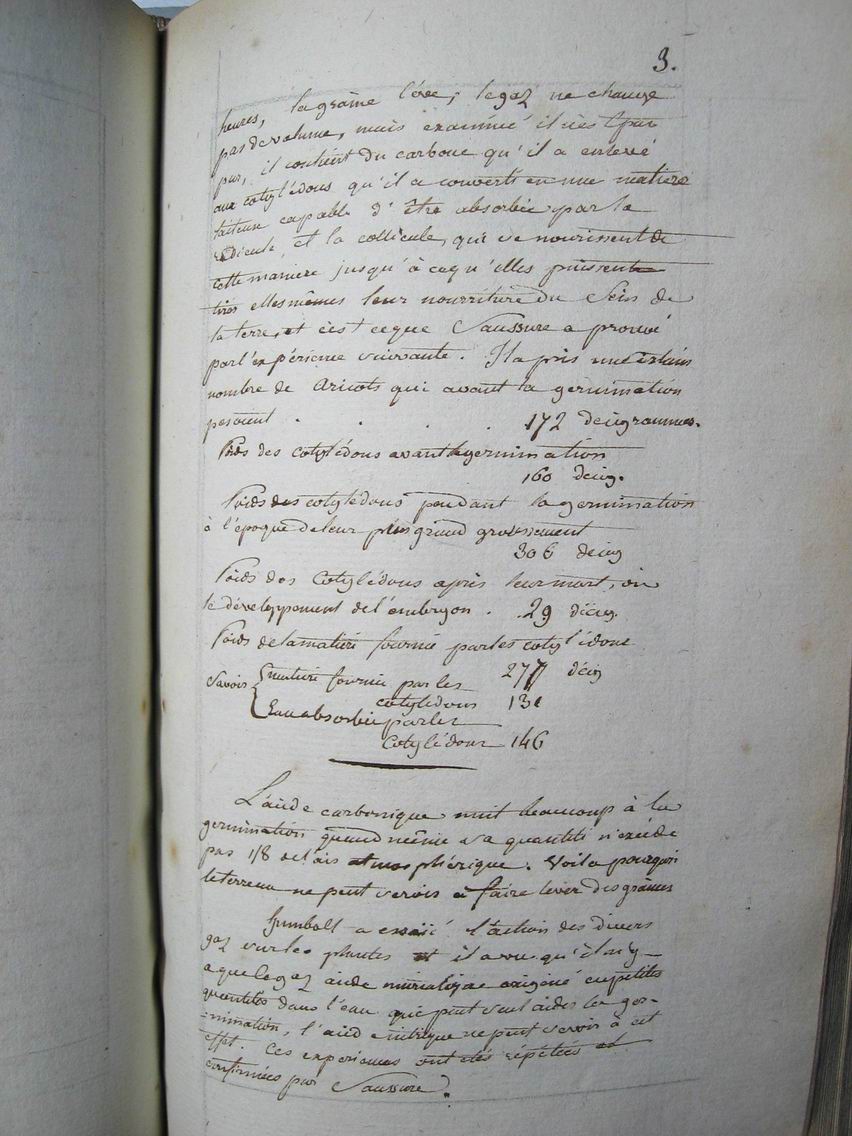 3.
heures, la graine lève; le gaz ne change
pas de volume, mais examiné il n'est plus
pur, il contient du carbone qu'il a enlevé
aux cotylédons qu'il a converti en une matiere
laiteuse capable d'être absorbée par la
radicule, et la collicule, qui se nourissent de
cette maniere jusqu'à ce qu'elles puissent
tirer elles mêmes leur nourriture du Sein de
la terre, et c'est ce que Saussure a prouvé
par l'expérience suivante. Il a pris un certain
nombre de aricots qui avant la germination
pesoient . . . . 172 decigrammes.
Poids des cotylédons avant la germination
160 decig.
Poids des cotylédons pendant la germination
à l'époque de leur plus grand grossissement
306 decig
Poids des Cotylédons après leur mort, ou
le développement de l'embryon . . 29 décig.
Poids de la matiere fournie par les cotylédons
277 décig
Savoir { matiere fournie par les
cotylédons 131
Eau absorbée par les
Cotylédons 146
L'acide carbonique nuit beaucoup à la
germination quand même sa quantité n'excéde
pas 1/8 de l'air atmosphérique. Voila pourquoi
le terreau ne peut servir à faire lever des graines
Humbolt a essaié l'action des divers
gaz sur les plantes et il a vu qu'il n'y
a que le gaz acide muriatique oxigené en petites
quantités dans l'eau qui peut seul aider la ger-
-mination, l'acide nitrique ne peut servir à cet
effet. Ces experiences ont étés répétées et
confirmées par Saussure.